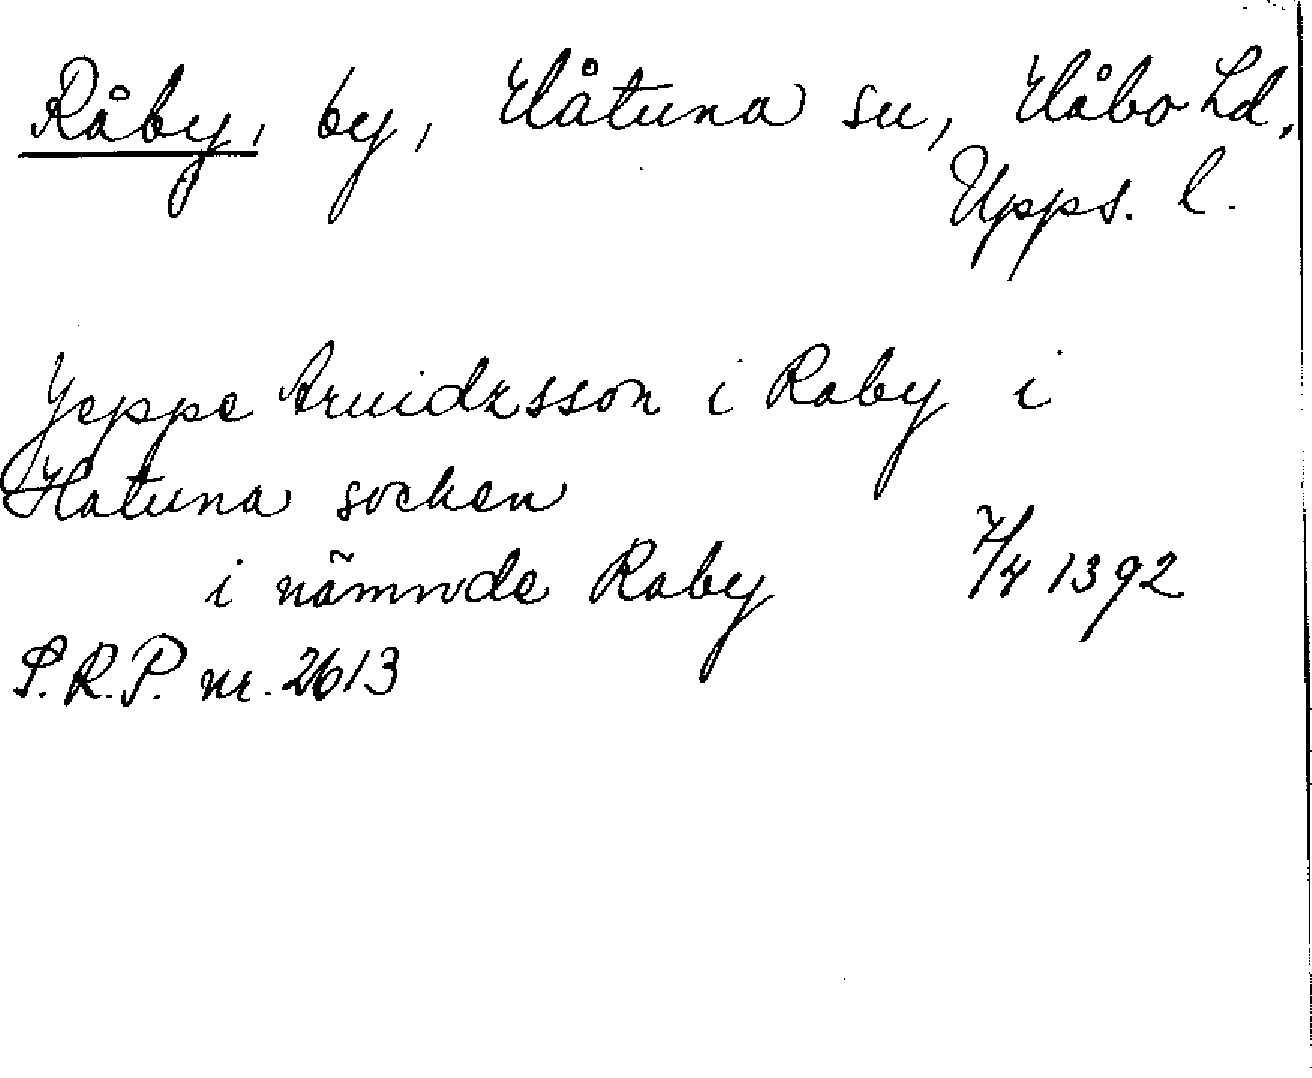 Råby, by, Håtuna sn, Håbo hd,
Upps. l.
Jeppe Aruidzsson i Raby i
Hatuna socken
i nämnde Raby 7/4 1392
S.R.P. nr. 2613